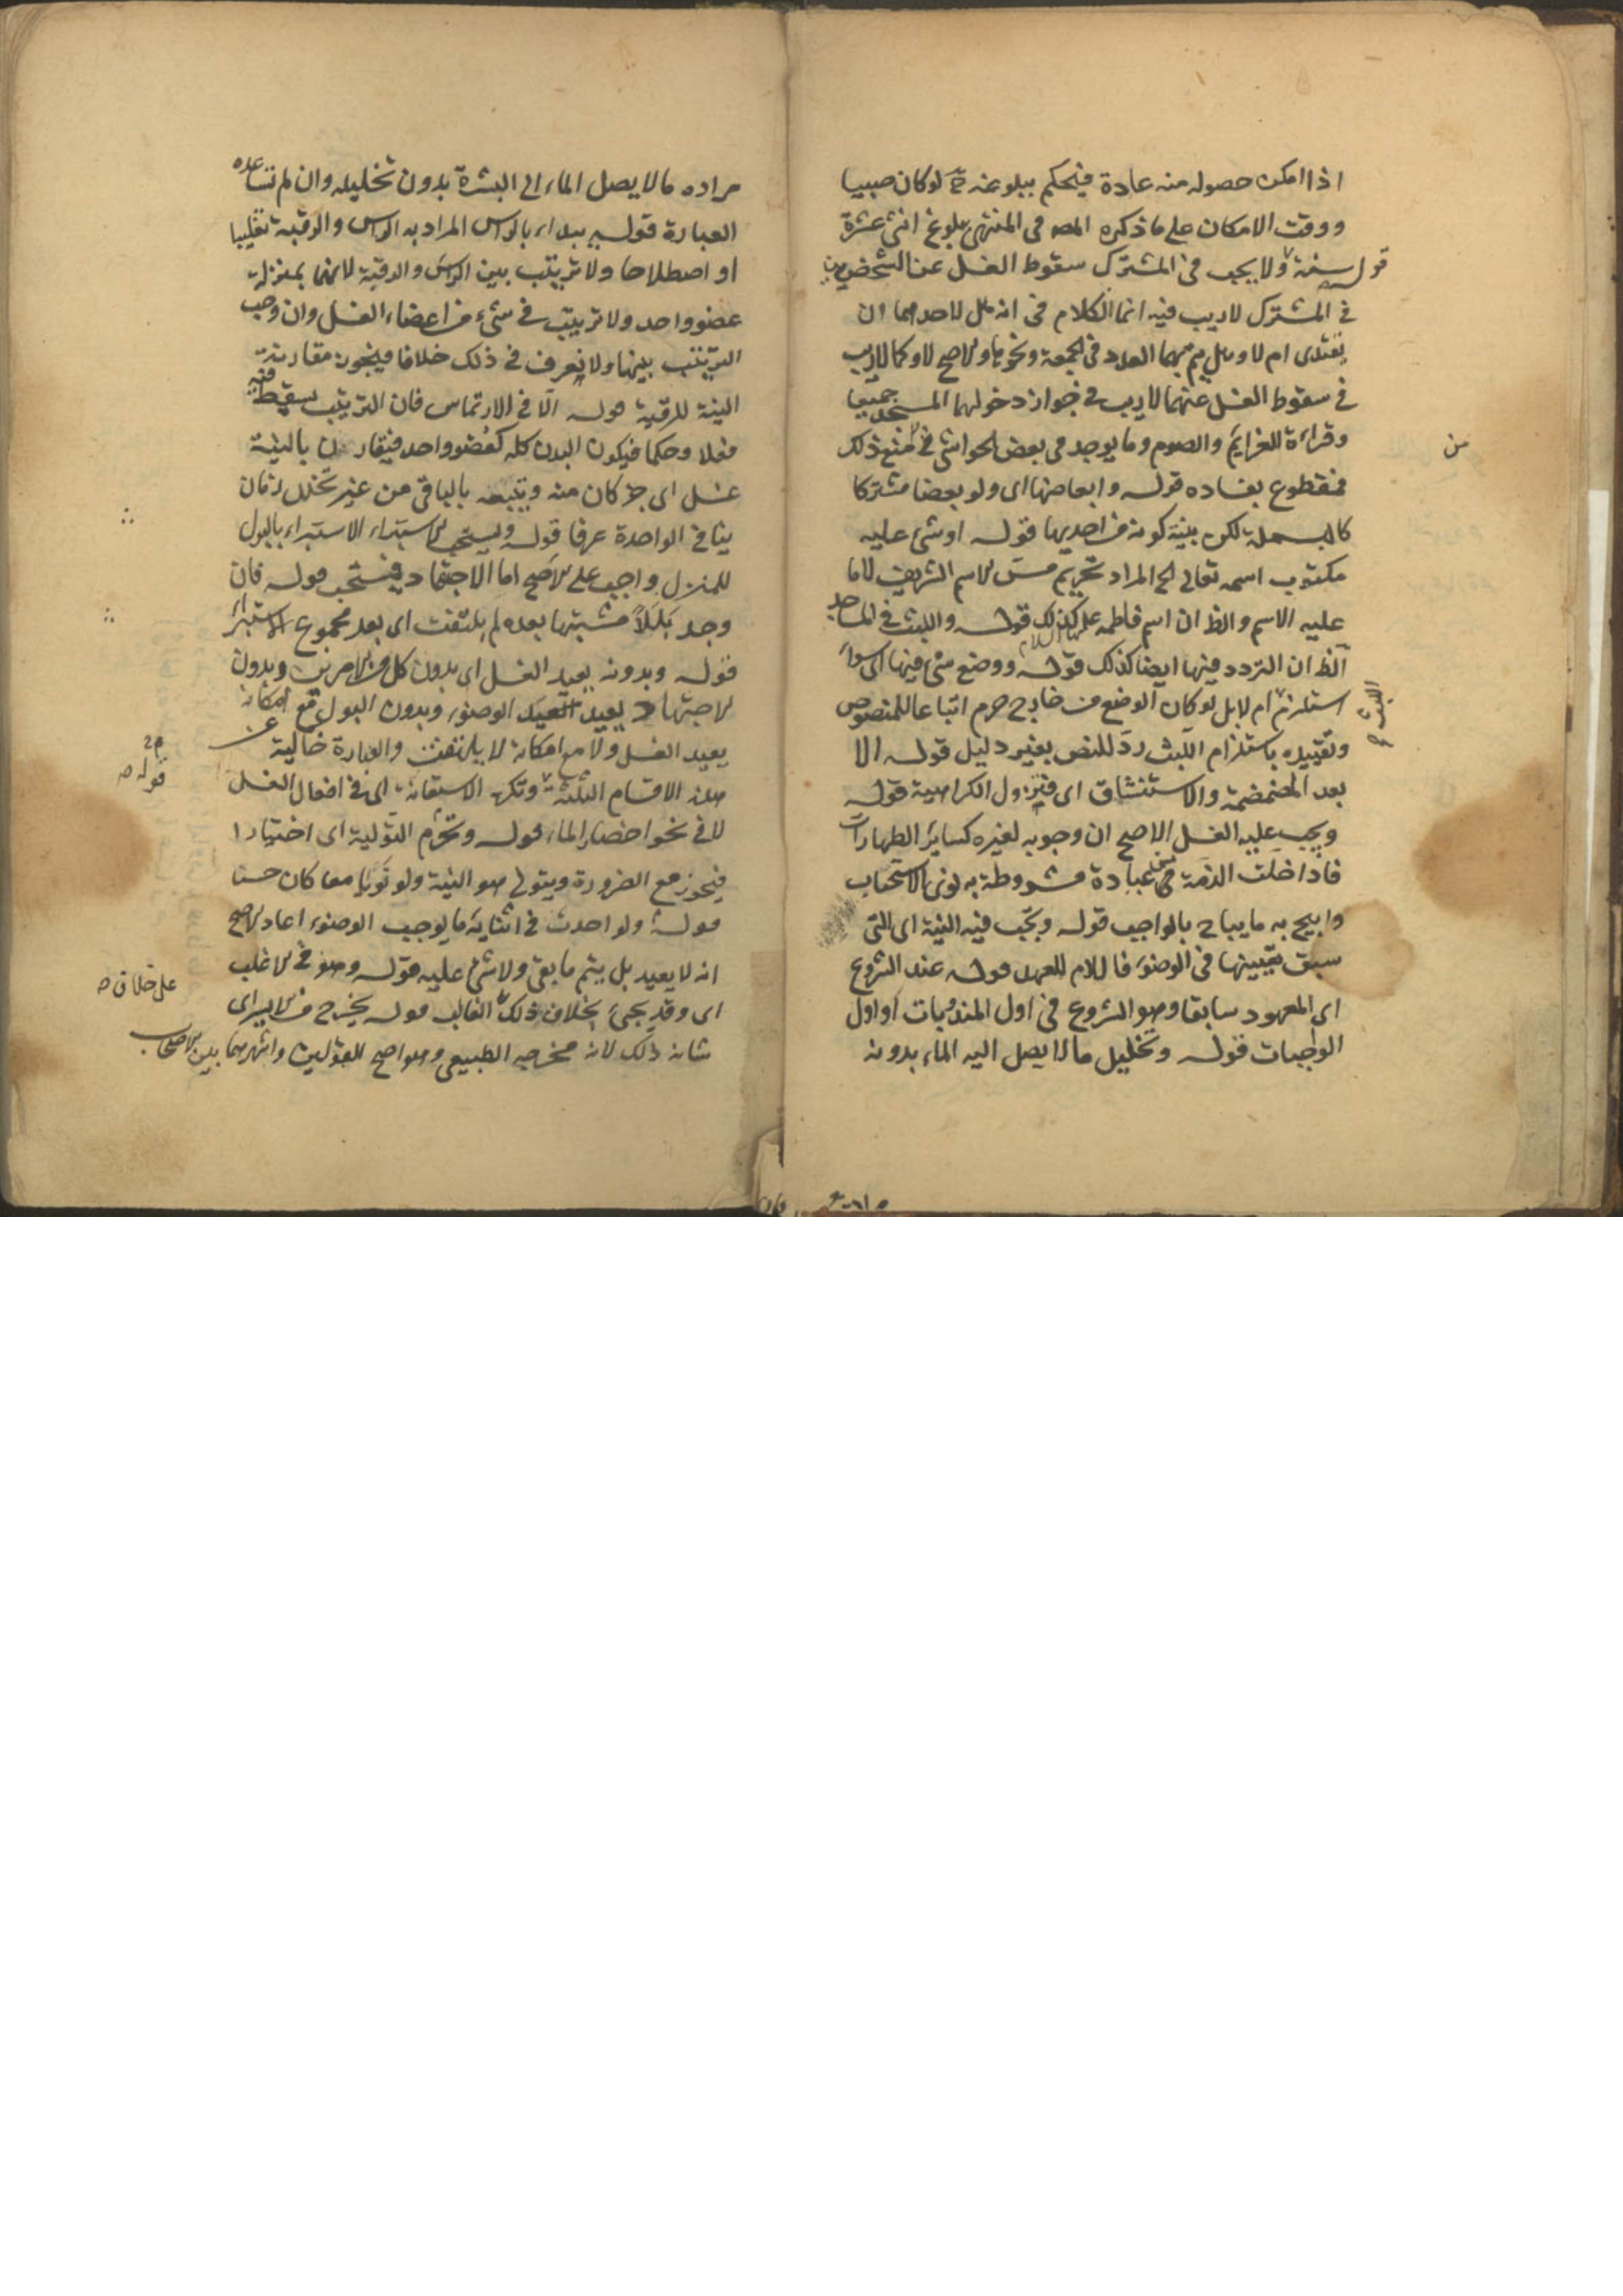 اذا امكن حصوله منه عادة فيحكم ببلوغه ح لو كان صبيا
ووقت الامكان على ما ذكره المصه فى المنتهى بلوغ اثنى عشرة
سنة قوله ولا يجب فى المشترك سقوط الغسل عن الشخصين
فى المشترك لا ريب فيه انما الكلام فى انه هل لاحدهما ان
يقتدى ام لا وهل يتم بهما العدد فى الجمعة ونحوها والاصح لا وكما لا ريب
فى سقوط الغسل عنهما لا ريب فى جواز دخولهما المسجد جميعا
وقراءة العزايم والصوم وما يوجد فى بعض الحواشى من منع ذلك
فمقطوع بفساده قوله وابعاضها اى ولو بعضا مشتركا
كالبسملة لكن بنية كونه من احديها قوله او شئ عليه
مكتوب اسمه تعالى الخ المراد تحريم مس الاسم الشريف لا ما
عليه الاسم والظ ان اسم فاطمه عليها السلام كذلك قوله واللبث فى المساجد
الظ ان التردد فيها ايضا كذلك قوله ووضع شئ فيها اى سواء
استلزم اللبث ام لا بل لو كان الوضع من خارج حرم اتباعا للمنصوص
وتقييده باستلزام اللبث رد للنص بغير دليل قوله الا
بعد المضمضمة والاستنشاق اى فتزول الكراهية قوله
ويجب عليه الغسل الاصح ان وجوبه لغيره كساير الطهارات
فاذا خلت الذمة من عبادة مشروطة به نوى الاستحباب
وابيح به ما يباح بالواجب قوله وتجب فيه النية اى التى
سبق تعيينها فى الوضوء فاللام للعهد قوله عند الشروع
اى المعهود سابقا وهو الشروع فى اول المندوبات او اول
الواجبات قوله وتخليل ما لا يصل اليه الماء بدونه
مراده ما لا يصل الماء الى البشرة بدون تخليله وان لم تساعده
العبارة قوله يبداء بالراس المراد به الراس والرقبة تغليبا
او اصطلاحا ولا ترتيب بين الراس والرقبة لانهما بمنزلة
عضو واحد ولا ترتيب فى شئ من اعضاء الغسل وان وجب
الترتيب بينها ولا نعرف فى ذلك خلافا فيجوز مقارنة
النية للرقبة قوله الا فى الارتماس فان الترتيب يسقط فيه
فعلا وحكما فيكون البدن كله كعضو واحد فيقارن بالنية
غسل اى جزء كان منه ويتبعه بالباقى من غير تخلل زمان
ينافى الواحدة عرفا قوله ويستحب الاستبراء الاستبراء بالبول
للمنزل واجب على الاصح اما الاجتهاد فيستحب قوله فان
وجد بللا مشتبها بعده لم يلتفت اى بعد مجموع الاستبراء
قوله وبدونه يعيد الغسل اى بدون كل من الامرين وبدون
الاجتهاد يعيد الوضوء وبدون البول مع امكانه
يعيد الغسل ولا مع امكانه لا يلتفت والعبارة خالية عن
هذه الاقسام الثلثة قوله وتكره الاستعانة اى فى افعال الغسل
لا فى نحو احضار الماء قوله وتحرم التولية اى اختيارا
فيجوز مع الضرورة ويتولى هو النية ولو نويا معا كان حسنا
قوله ولو احدث فى اثنايه ما يوجب الوضوء اعاد الاصح
انه لا يعيد بل يتم ما بقى ولا شئ عليه قوله وهو فى الاغلب
اى وقد يجئ بخلاف ذلك على خلاف الغالب قوله يخرج من الايسر اى
شانه ذلك لانه مخرجه الطبيعى وهو اصح القولين واشهرهما بين الاصحاب